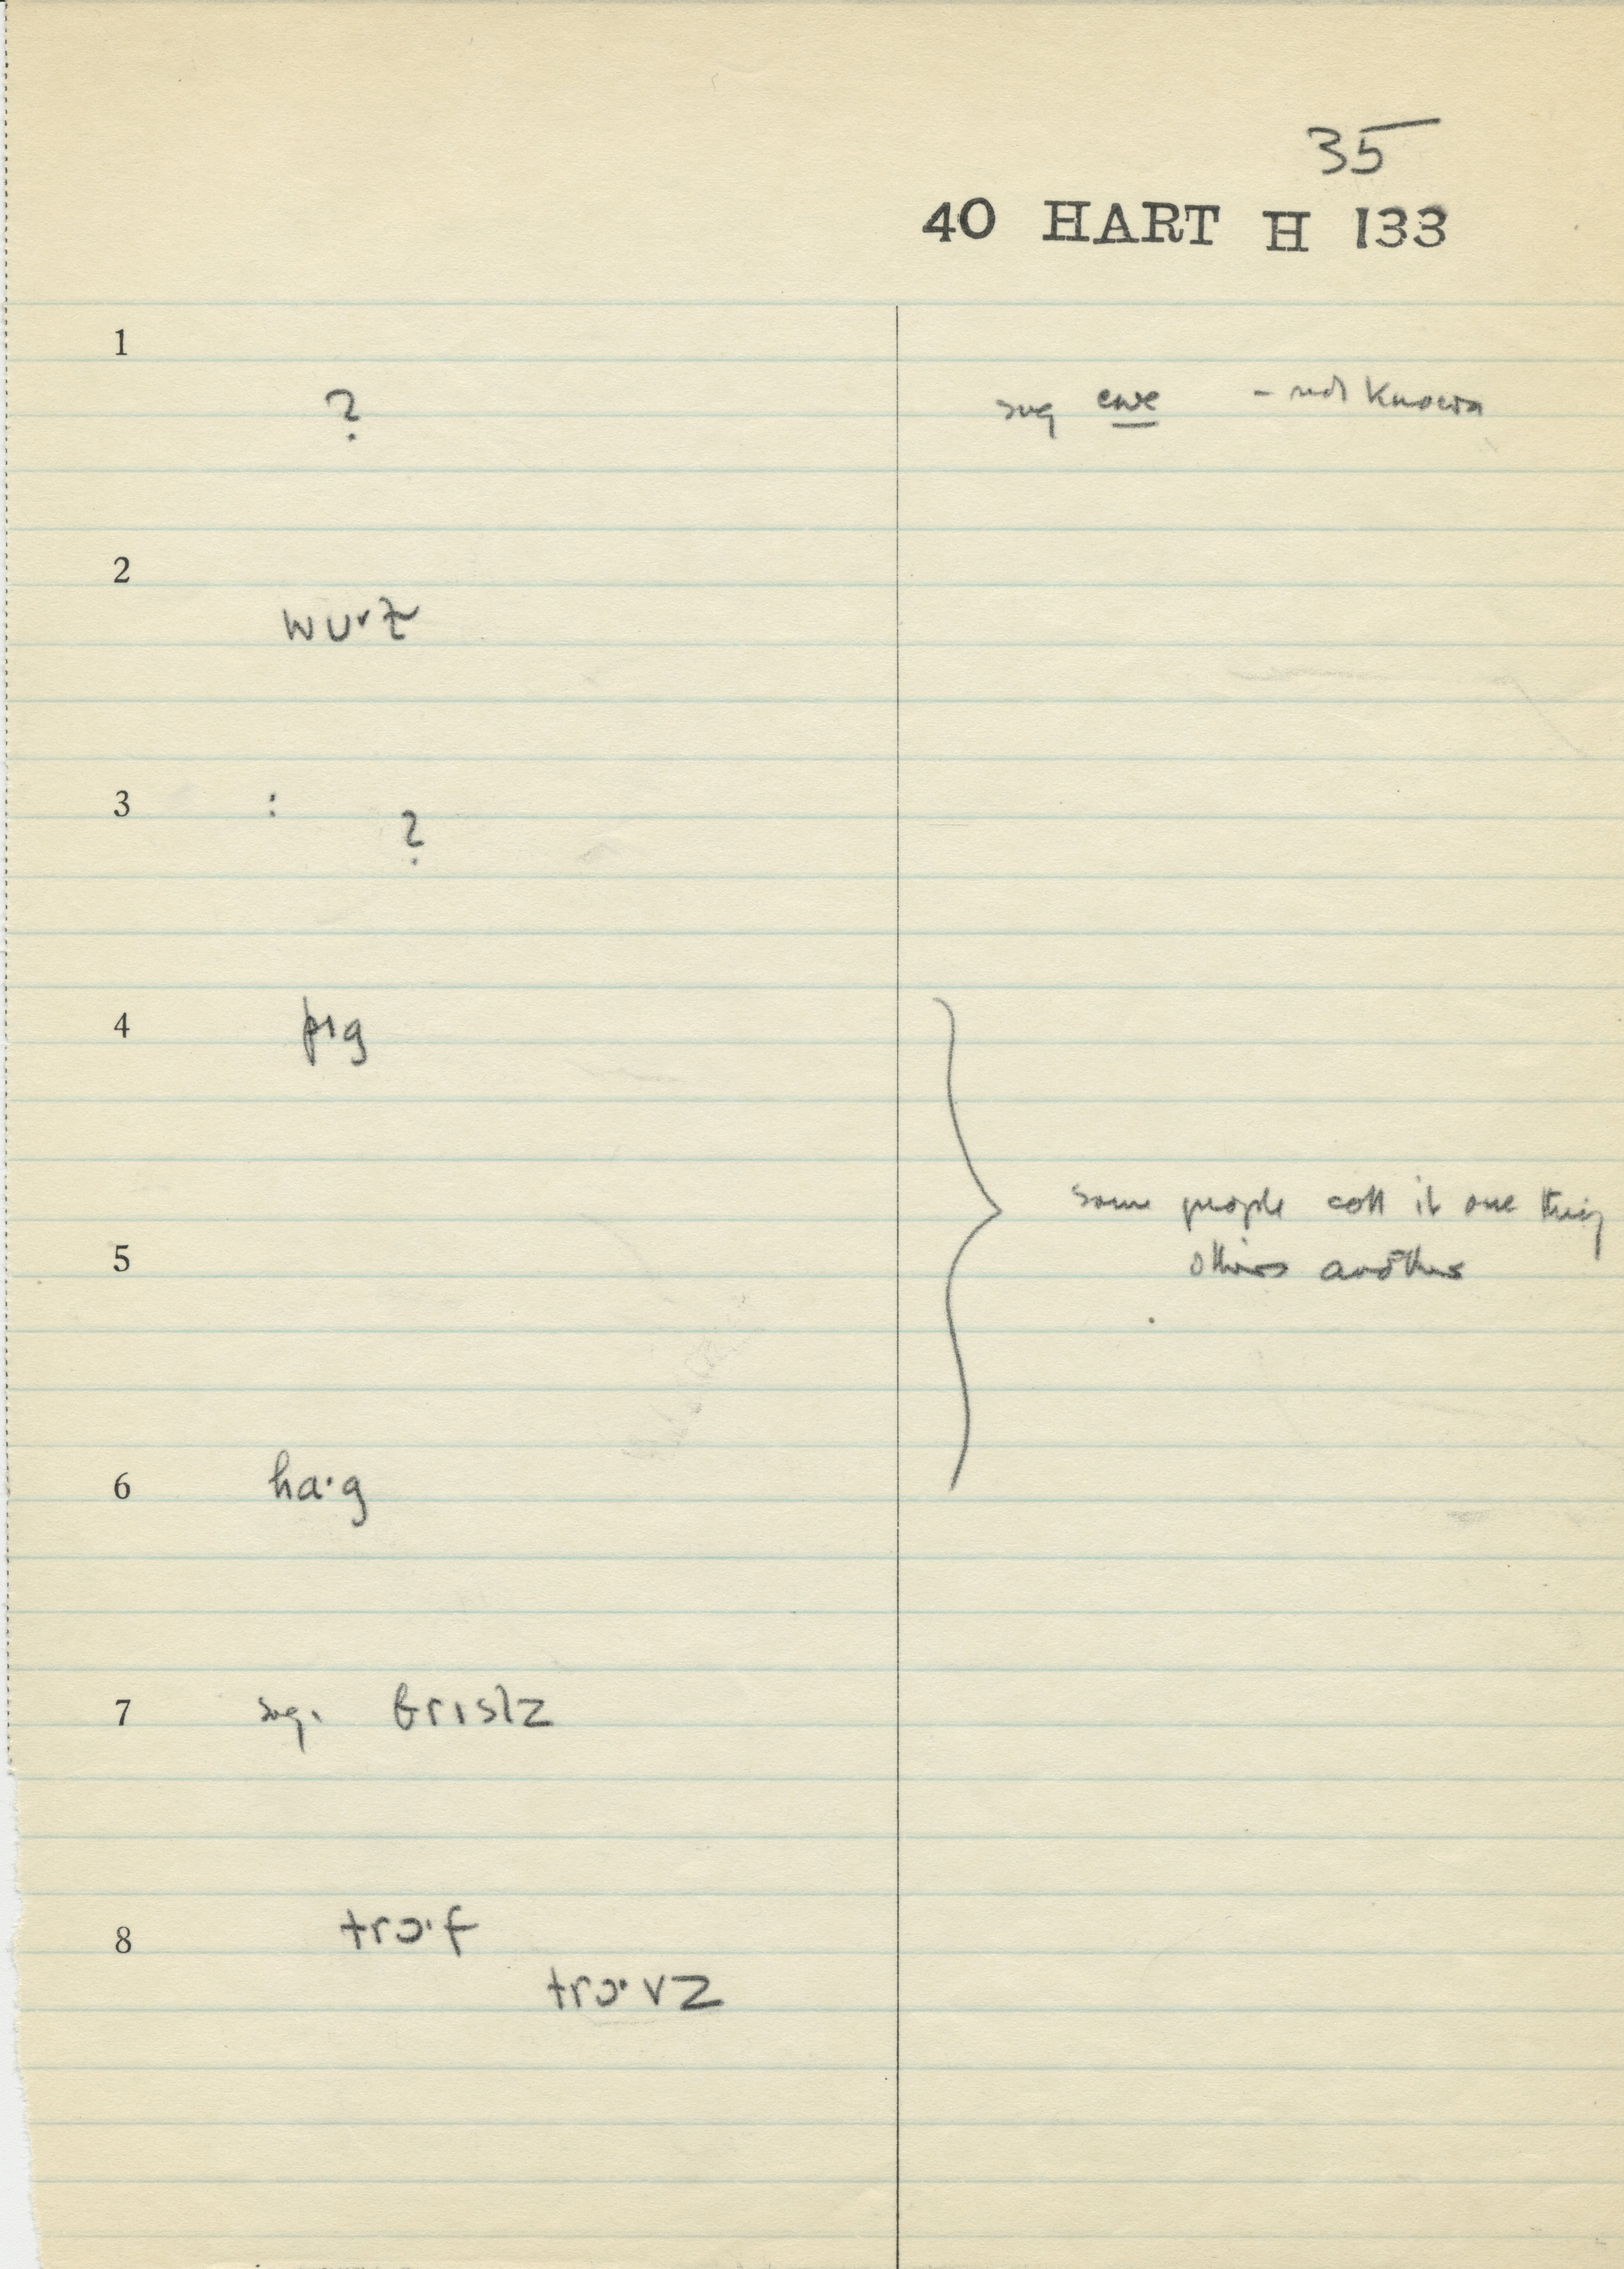 35
40 HART H 133
1
? sug ewe - not known
2
wurz
3 : ?
4 pɪg
some people call it one thing
5 others another
6 ha·g
7 sug. brɪslz
8 trɔ·f
trɔ·vz